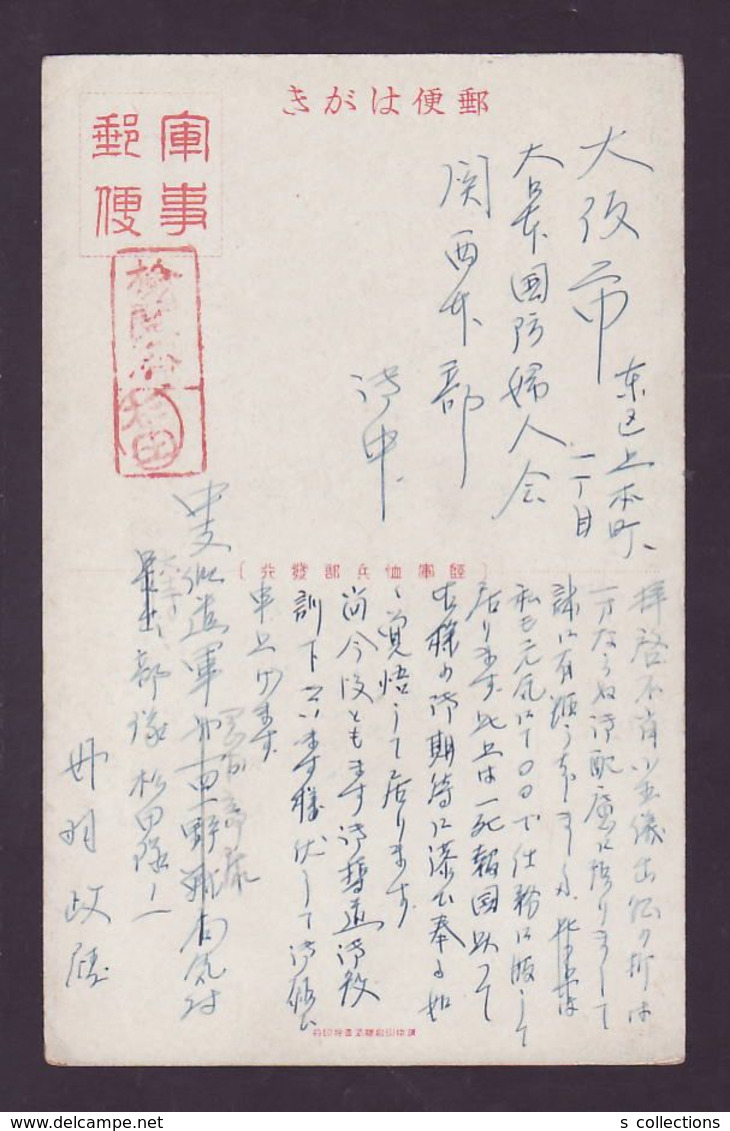 郵便はがき
軍事
郵便
検閲済
大阪市
東区上本町
一丁目
大日本国防婦人会
関西本部
御中
陸軍恤兵部發行
拝啓 不肖小生儀出征の折は
一方ならぬ御配慮に預りまして
誠に有難う
私も元気にて〇〇で仕務に服して
居ります 此上は一死報国以つて
皆様の御期待に添ひ奉る如
く覚悟して居ります
尚今後とも 御導 御教
訓下さいます様伏して御願ひ
申上げます
中支派遣軍 野戦局気付
部隊松田隊ノ一
丹羽政
s collections